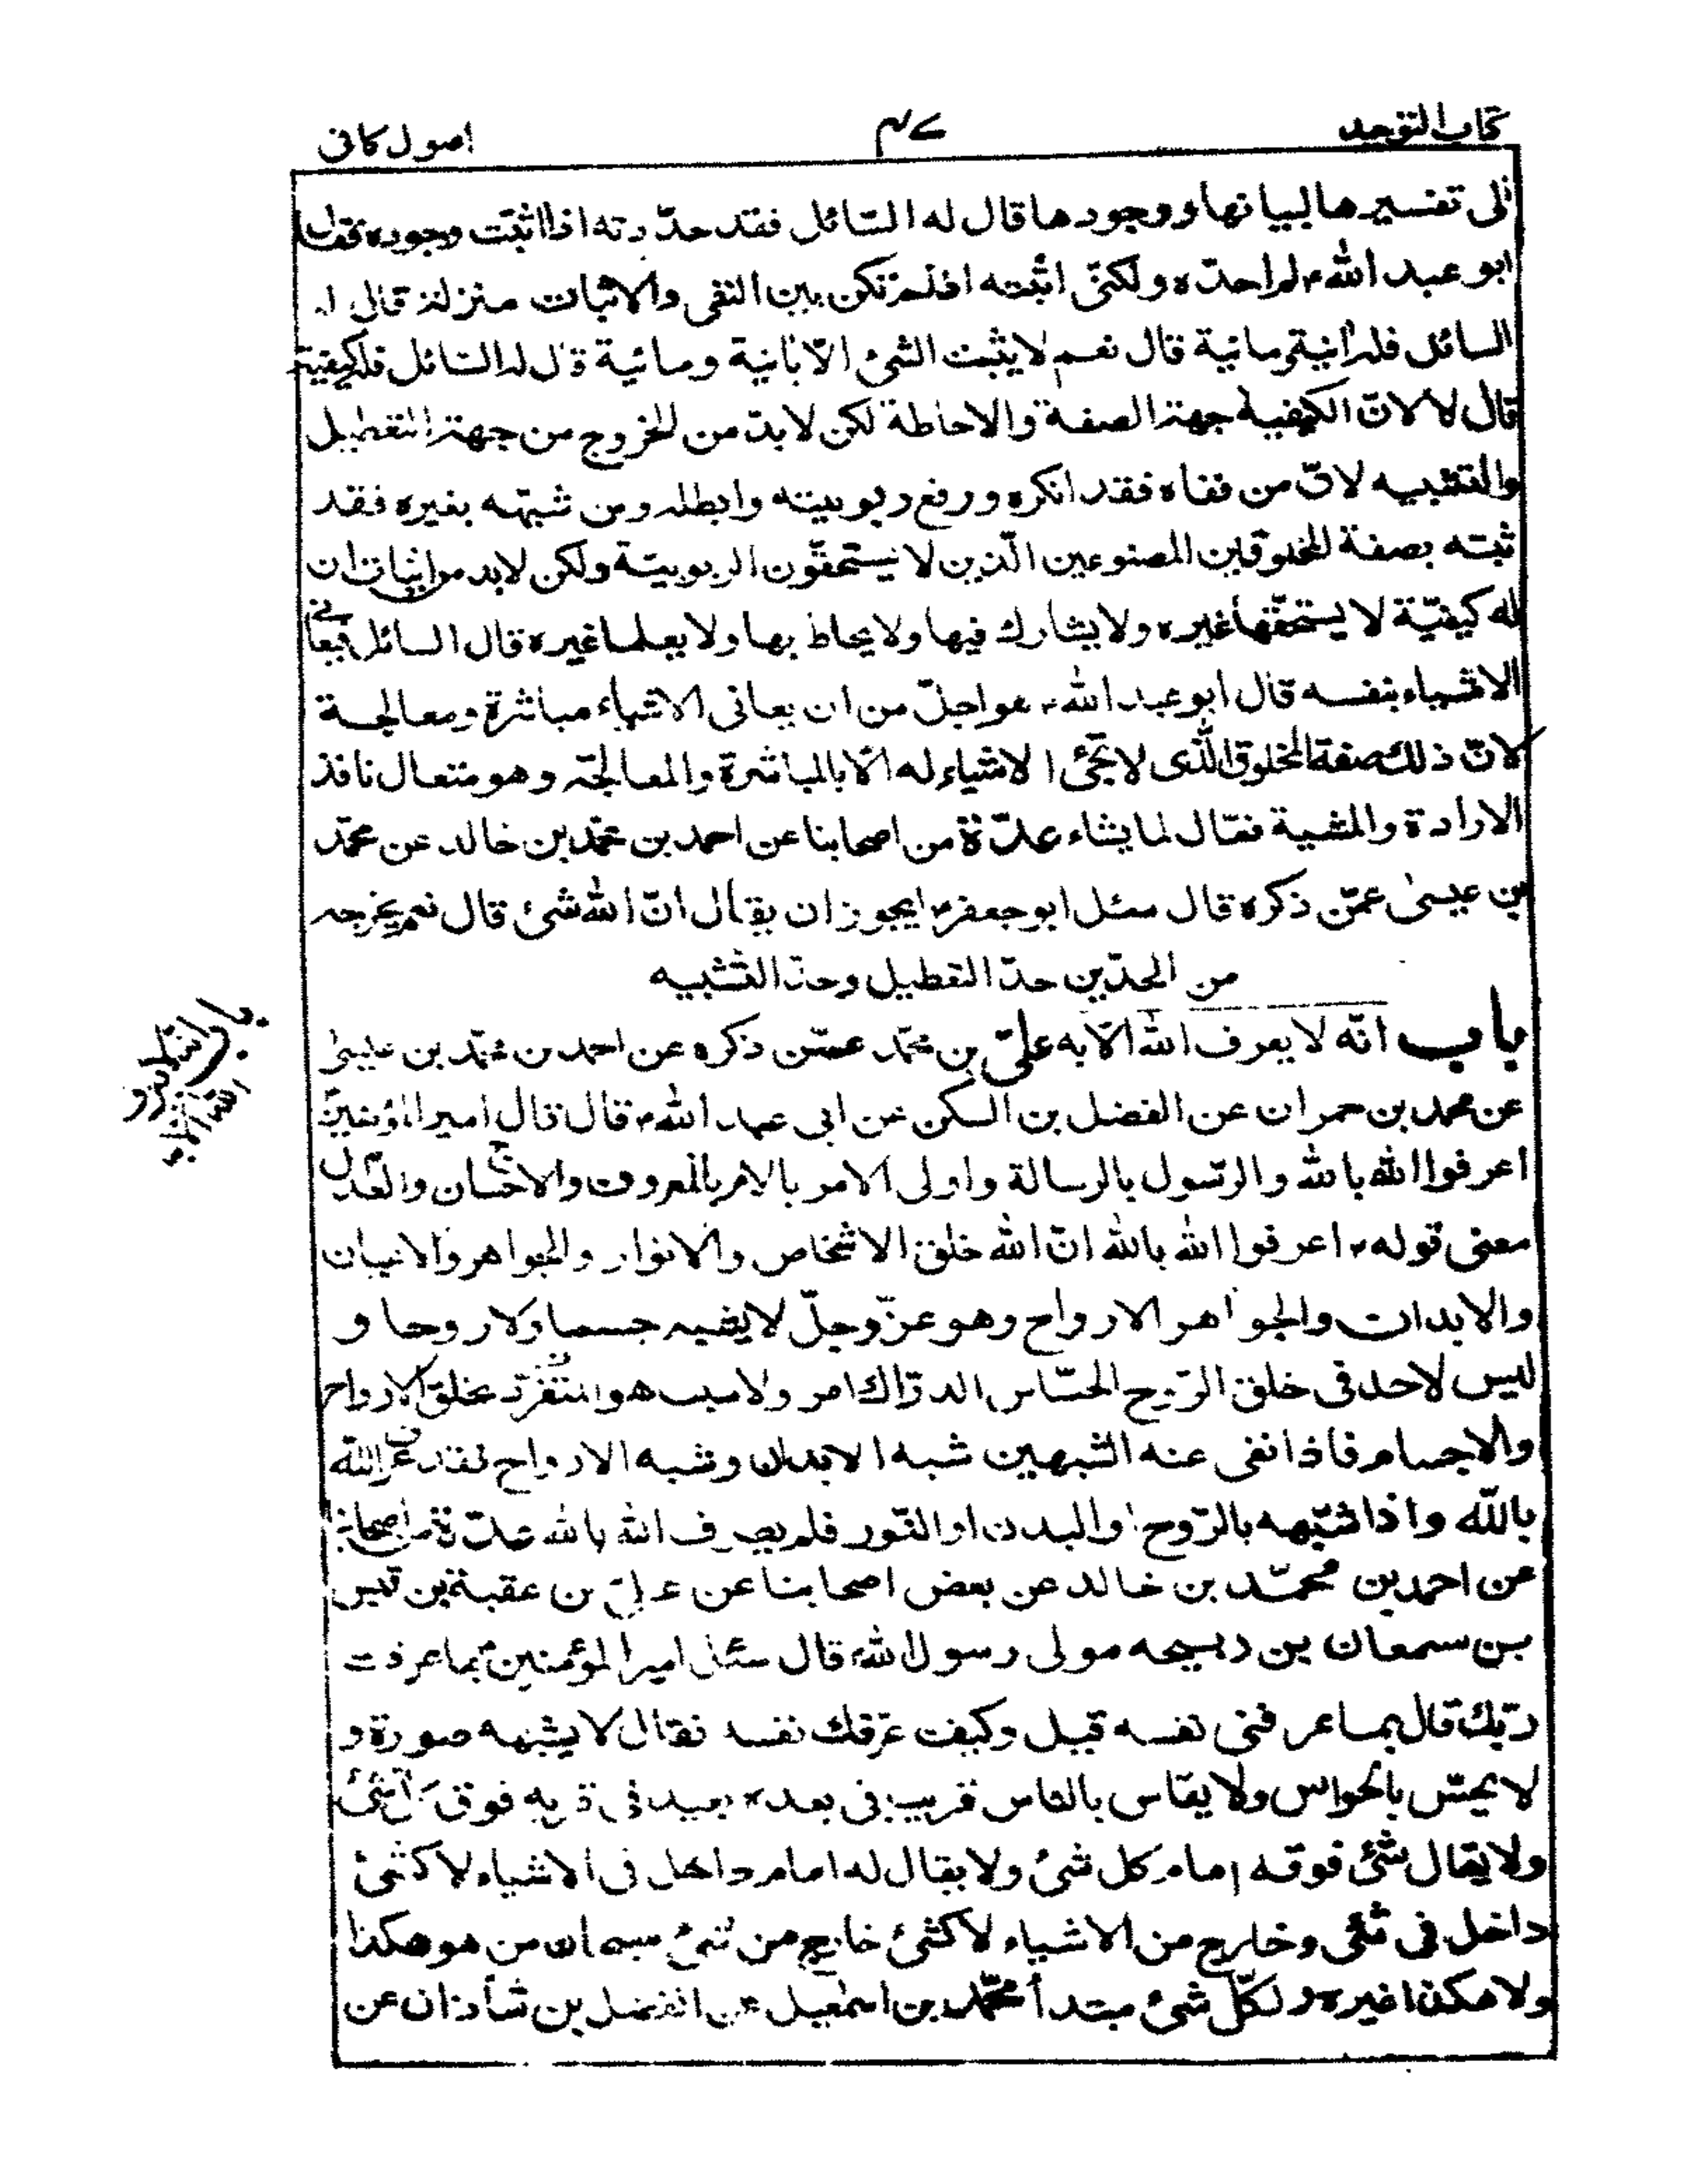 كتاب التوحيد
٤٧
اصول كافى
الى تفسيرها لبيانها ووجودها قال له السائل فقد حدّدته اذ اثبتّ وجوده فقال
ابو عبد الله ع لم احدّه ولكنّى اثبته اذ لم تكن بين النفى والاثبات منزلة قال له
السائل فله انّية ومائية قال نعم لا يثبت الشئ الّا بانية ومائية قال له السائل فله كيفية
قال لا لانّ الكيفية جهة الصفة والاحاطة لكن لا بدّ من الخروج من جهة التعطيل
والتشبيه لانّ من نفاه فقد انكره ورفع ربوبيته وابطله ومن شبّهه بغيره فقد
ثبته بصفة المخلوقين المصنوعين الّذين لا يستحقّون الربوبيّة ولكن لا بد من اثبات ان
له كيفيّة لا يستحقّها غيره ولا يشارك فيها ولا يحاط بها ولا يعلمها غيره قال السائل فيعانى
الاشياء بنفسه قال ابو عبد الله ع هو اجلّ من ان يعانى الاشياء مباشرة ومعالجة
لانّ ذلك صفة المخلوق الّذى لا تجئ الاشياء له الّا بالمباشرة والمعالجة وهو متعال نافذ
الارادة والمشية فعّال لما يشاء عدّة من اصحابنا عن احمد بن محمّد بن خالد عن محمّد
بن عيسىٰ عمّن ذكره قال سئل ابو جعفر ع ايجوز ان يقال انّ الله شئ قال نعم يخرجه
من الحدّين حدّ التعطيل وحدّ التشبيه
باب انّه لا يعرف الله الّا به علىّ بن محمّد عمّن ذكره عن احمد بن محمّد بن عيسىٰ
عن محمد بن حمران عن الفضل بن السكن عن ابى عبد الله ع قال قال امير المؤمنين ع
اعرفوا الله بالله والرّسول بالرسالة واولى الامر بالامر بالمعروف والاحسان والعدل
معنى قوله ع اعرفوا الله بالله انّ الله خلق الاشخاص والانوار والجواهر والاعيان
والابدان والجواهر الارواح وهو عزّ وجلّ لا يشبه جسما ولا روحا و
ليس لاحد فى خلق الرّوح الحسّاس الدرّاك امر ولا سبب هو المتفرّد بخلق الارواح
والاجسام فاذا نفى عنه الشبهين شبه الابدان وشبه الارواح فقد عرف الله
بالله واذا شبّهه بالرّوح او البدن او النّور فلم يعرف الله بالله عدّة من اصحابنا
عن احمد بن محمّد بن خالد عن بعض اصحابنا عن علىّ بن عقبة بن قيس
بن سمعان بن ربيحه مولى رسول الله قال سئل امير المؤمنين ع بما عرفت
ربّك قال بما عرفنى نفسه قيل وكيف عرّفك نفسه فقال لا يشبهه صورة و
لا يحسّ بالحواس ولا يقاس بالناس قريب فى بعده بعيد فى قربه فوق كلّ شئ
ولا يقال شئ فوقه امام كل شئ ولا يقال له امام داخل فى الاشياء لا كشئ
داخل فى شئ وخارج من الاشياء لا كشئ خارج من شئ سبحان من هو هكذا
ولا هكذا غيره ولكلّ شئ مبتدأ محمّد بن اسمعيل عن الفضل بن شاذان عن